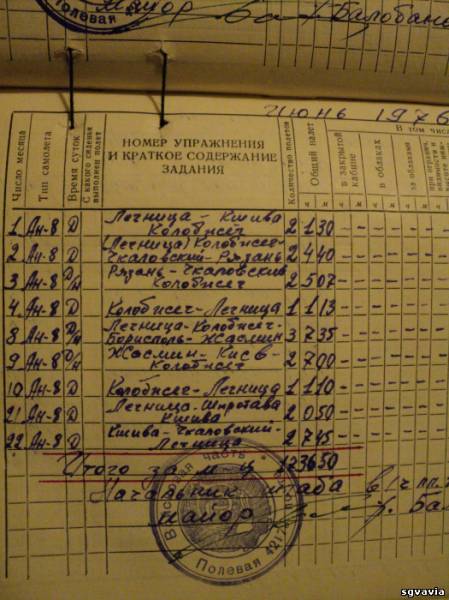 майор
Балобан
Полевая
июнь 1976
Число месяца
Тип самолета
Время суток
С какого сиденья выполнен полет
НОМЕР УПРАЖНЕНИЯ
И КРАТКОЕ СОДЕРЖАНИЕ
ЗАДАНИЯ
Количество полетов
Общий налет
В том числе
в закрытой кабине
в облаках
за облаками
при огранич.
ч м ч м ч м ч м
1 Ан-8 Д Легница - Кшива Колобжег 2 1 30 - - - - - -
2 Ан-8 Д (Легница) Колобжег- Чкаловский-Рязань 2 4 40 - - - - - -
3 Ан-8 Д/Н Рязань-Чкаловский Колобжег 2 5 07 - - - - - -
4 Ан-8 Д Колобжег-Легница 1 1 13 - - - - - -
8 Ан-8 Д/Н Легница-Колобжег- Борисполь-Жасмин 3 7 35 - - - - - -
9 Ан-8 Д/Н Жасмин-Киев- Колобжег 2 7 00 - - - - - -
10 Ан-8 Д Колобжег-Легница 1 1 10 - - - - - -
21 Ан-8 Д Легница-Шпротава Кшива 2 0 50 - - - - - -
22 Ан-8 Д Кшива-Чкаловский- Легница 2 7 45 - - - - - -
Итого за м-ц 17 36 50 - - - - - -
Начальник штаба в/ч п.п.
майор Бал
Войсковая часть
Полевая 4217
sgvavia